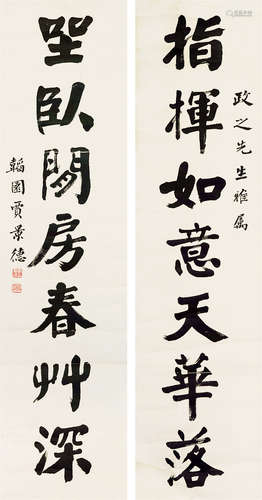 政之先生雅属
指揮如意天華落
坐臥閒房春艸深
韜園賈景德